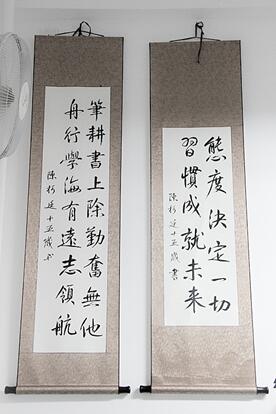 態度決定一切
習慣成就未來
陳杉廷十五歲書
筆耕書上除勤奮無他
舟行學海有遠志領航
陳杉廷十五歲书